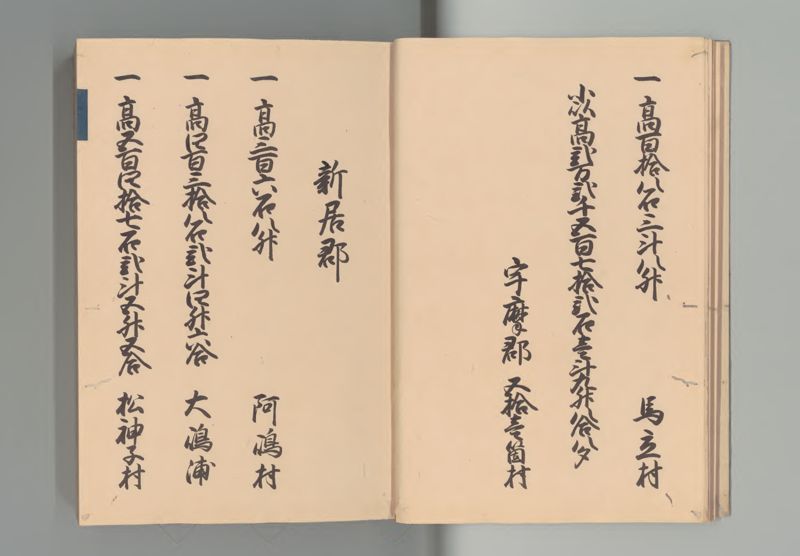 一 高百拾八石三斗八升 馬立村
小以高弐万弐千五百七拾弐石壱斗九升八合八夕
宇摩郡 五拾壱箇村
新居郡
一 高三百六石八升 阿嶋村
一 高四百三拾八石弐斗四升六合 大嶋浦
一 高五百四拾七石弐斗五升五合 松神子村